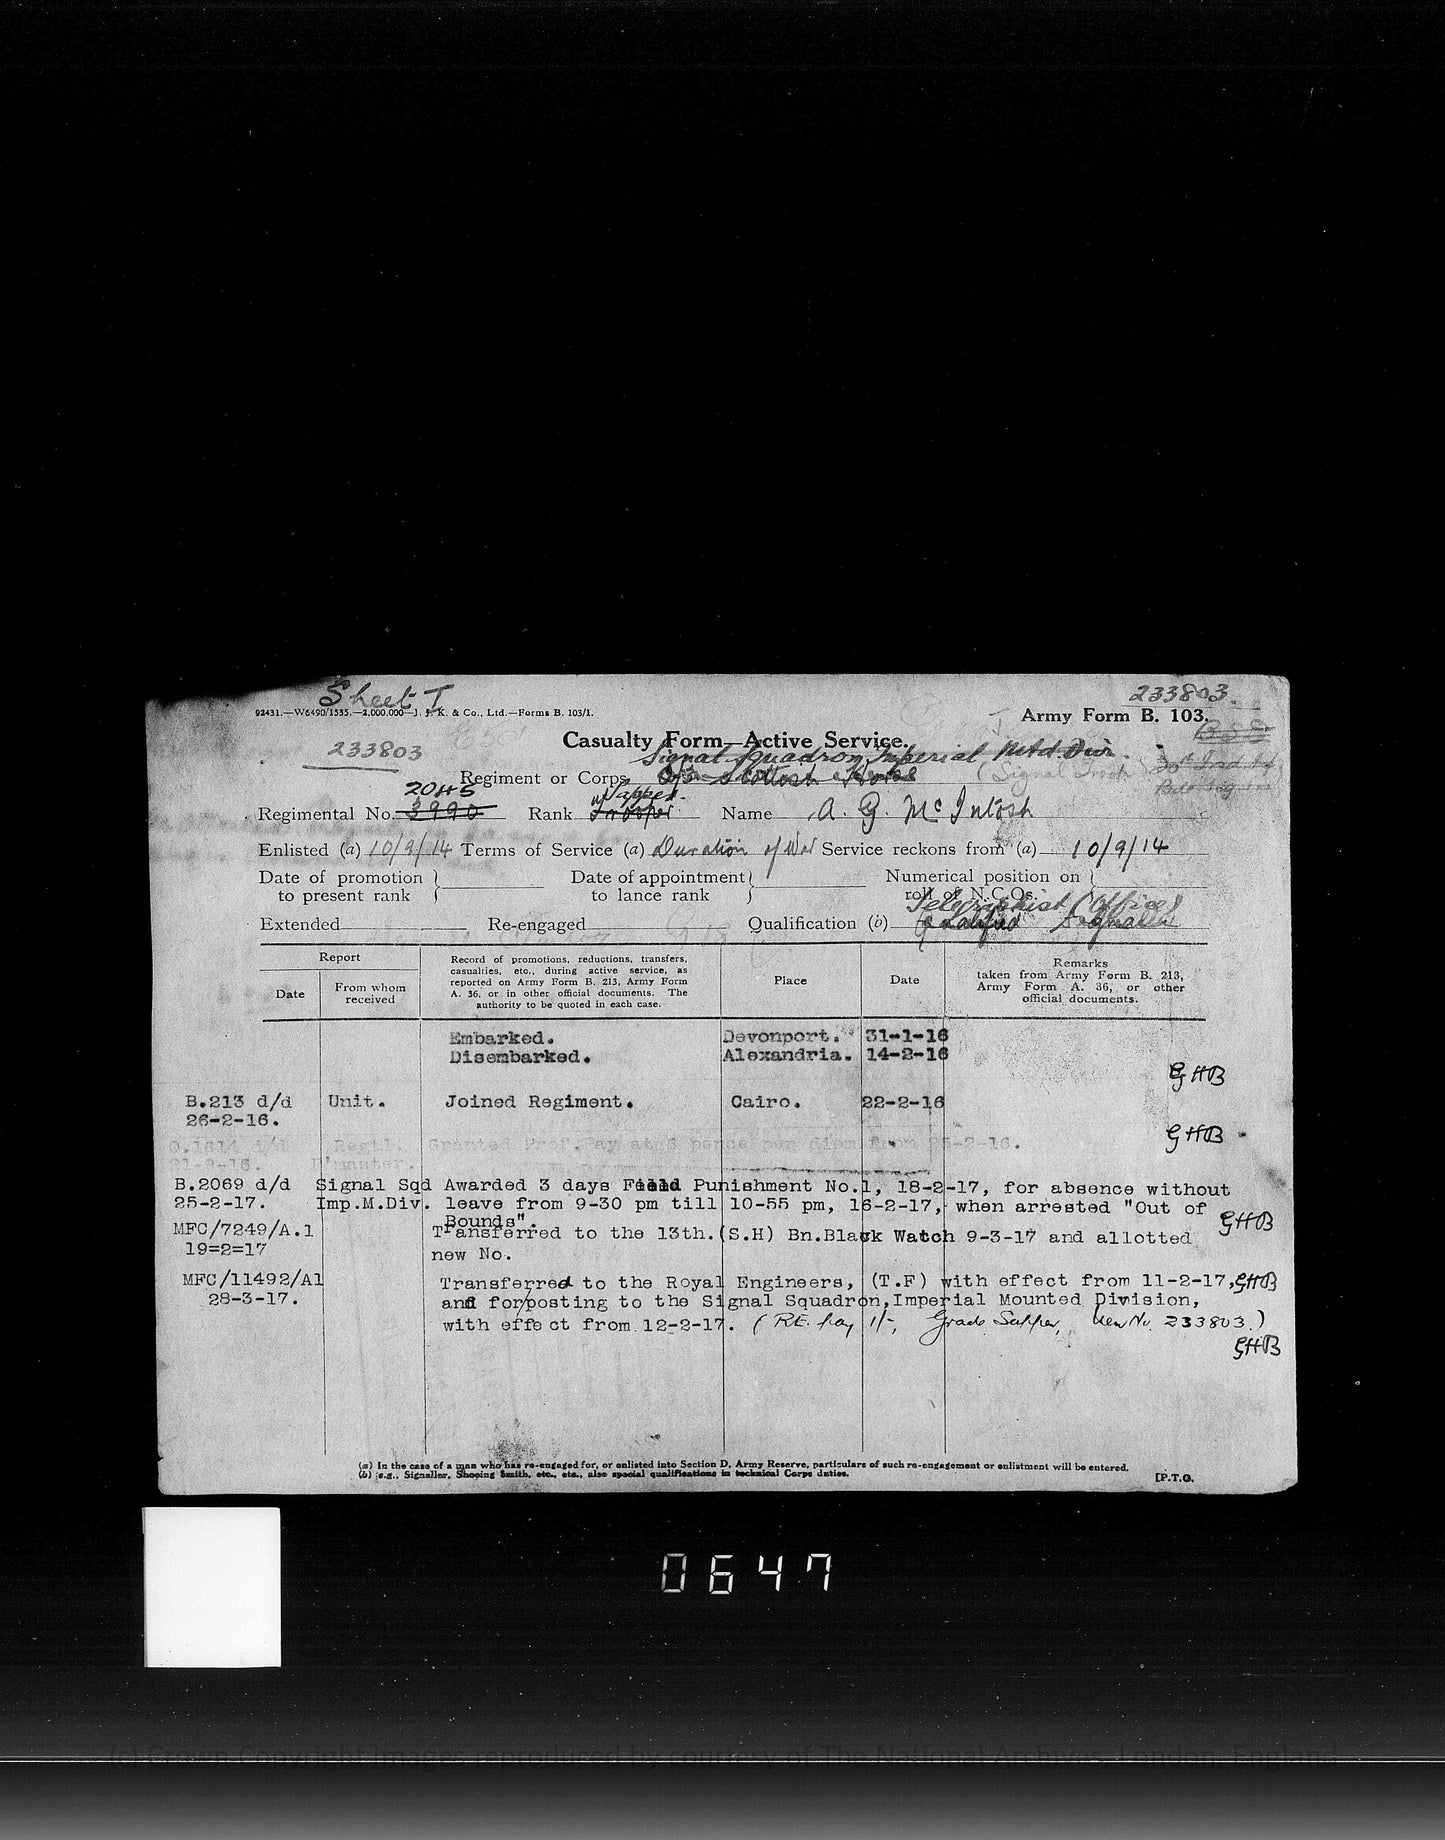 Sheet I
233803.
92431.—W6490/1535.—2,000,000—J. J. K. & Co., Ltd.—Forms B. 103/1.
Army Form B. 103.
Casualty Form—Active Service.
233803
Signal Squadron, Imperial Mtd. Divn.
Regiment or Corps Scottish Horse
2045 Sapper
Regimental No. 3990 Rank Trooper Name A. G. McIntosh
Enlisted (a) 10/9/14 Terms of Service (a) Duration of War Service reckons from (a) 10/9/14
Date of promotion to present rank } Date of appointment to lance rank } Numerical position on roll of N.C.Os. }
Telegraphist (Office)
Extended Re-engaged Qualification (b) Qualified Signaller
Report
Date
From whom received
Record of promotions, reductions, transfers,
casualties, etc., during active service, as
reported on Army Form B. 213, Army Form
A. 36, or in other official documents. The
authority to be quoted in each case.
Place
Date
Remarks
taken from Army Form B. 213,
Army Form A. 36, or other
official documents.
Embarked. Devonport. 31-1-16
Disembarked. Alexandria. 14-2-16
GHB
B.213 d/d Unit. Joined Regiment. Cairo. 22-2-16
26-2-16.
GHB
O.1614 d/d Regtl. Granted Prof.Pay at 6 pence per diem from 25-2-16.
P'master.
B.2069 d/d Signal Sqd Awarded 3 days Field Punishment No.1, 18-2-17, for absence without
25-2-17. Imp.M.Div. leave from 9-30 pm till 10-55 pm, 16-2-17, when arrested "Out of
Bounds". GHB
MFC/7249/A.1 Transferred to the 13th.(S.H) Bn.Black Watch 9-3-17 and allotted
19=2=17 new No.
MFC/11492/A1 Transferred to the Royal Engineers, (T.F) with effect from 11-2-17, GHB
28-3-17. and for/posting to the Signal Squadron,Imperial Mounted Division,
with effe ct from 12-2-17. (R.E. pay 1/-, Grade Sapper, New No. 233803.)
GHB
(a) In the case of a man who has re-engaged for, or enlisted into Section D, Army Reserve, particulars of such re-engagement or enlistment will be entered.
(b) e.g., Signaller, Shoeing Smith, etc., etc., also special qualifications in technical Corps duties.
[P.T.O.
0647
(c) Crown Copyright Images reproduced by courtesy of The National Archives, London, England.